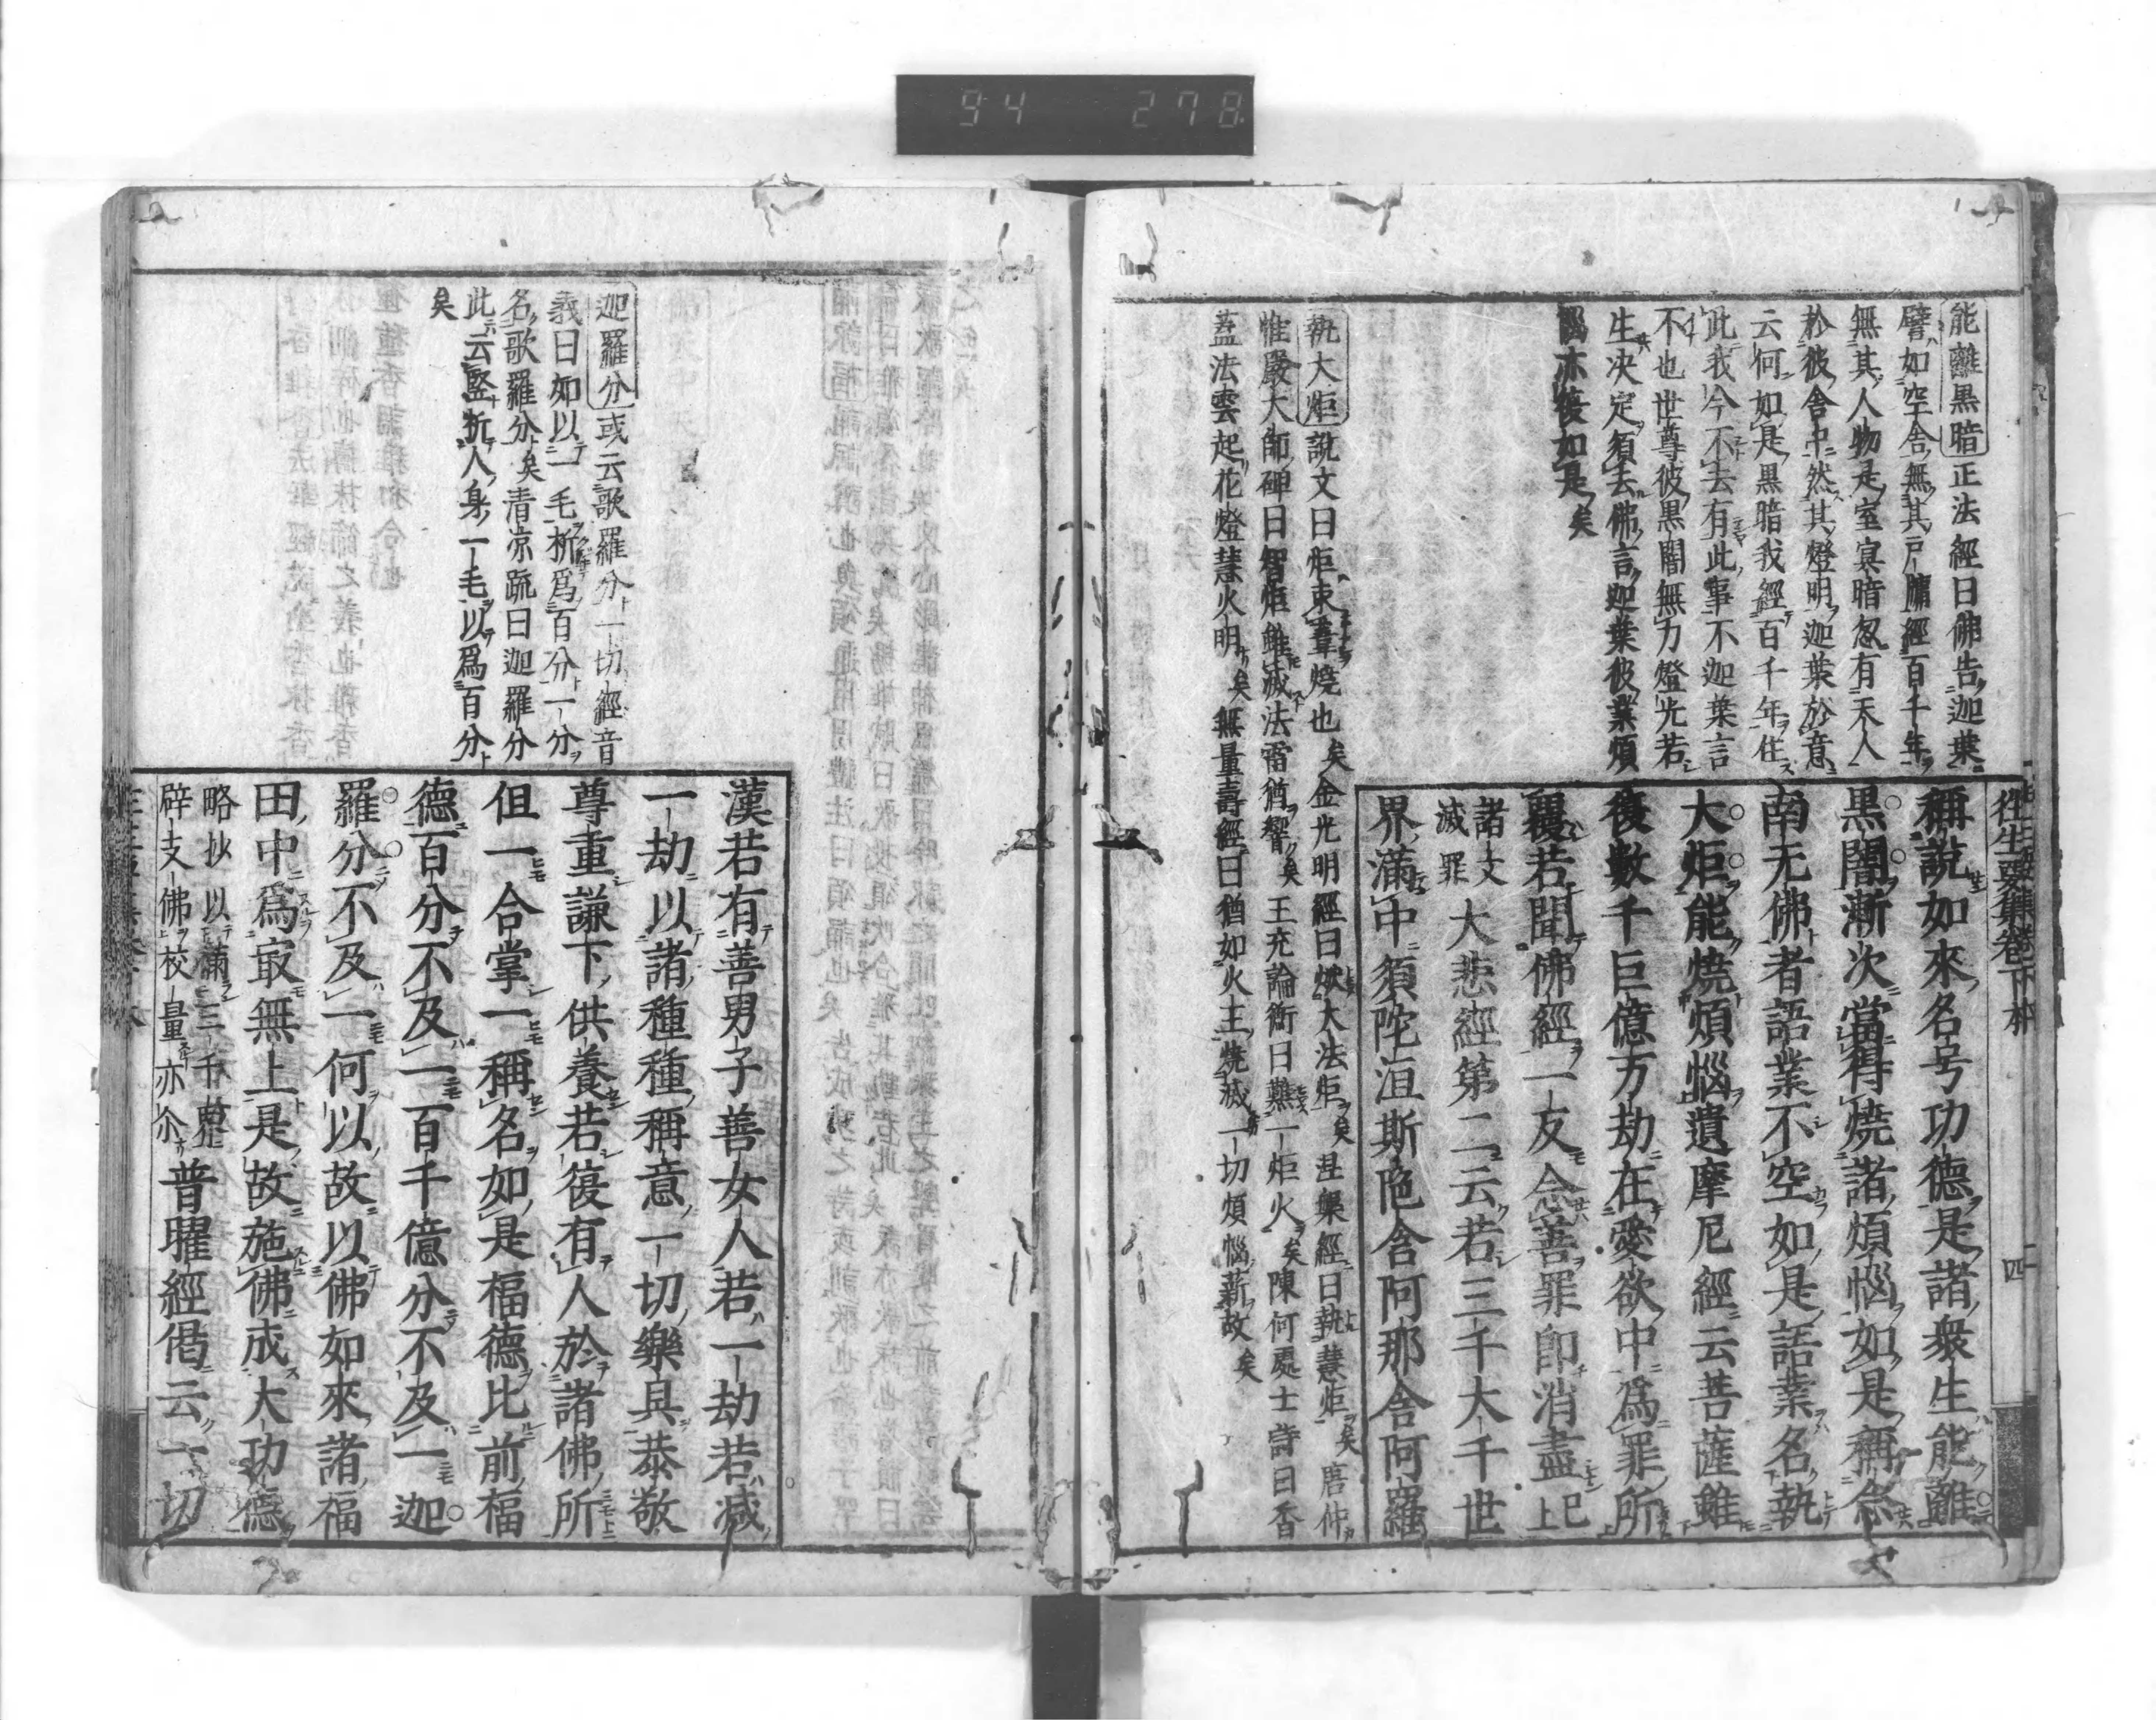 94 278
往生要集卷下本
四
能離黒暗正法經曰佛告迦葉
譬如空舎無其戸牖經百千年
無其人物是室冥暗忽有天人
於彼舎中然其燈明迦葉於意
云何如是黒暗我經百千年住
此我今不去有此事不迦葉言
不也世尊彼黒闇無力燈光若
生决定須去佛言迦葉彼業煩
惱亦復如是矣
稱說如來名号功德是諸衆生能離
黒闇漸次當得燒諸煩惱如是稱念
南无佛者語業不空如是語業名執
大炬能燒煩惱遺摩尼經云菩薩雖
復數千巨億万劫在愛欲中爲罪所
覆若聞佛經一反念善罪即消盡已上
諸文滅罪大悲經第二云若三千大千世
界滿中須陀洹斯陁含阿那含阿羅
執大炬說文曰炬束葦燒也矣金光明經曰燃大法炬矣涅槃經曰執慧炬矣唐仲
惟嚴大師碑曰智炬雖滅法雷猶響矣王充論衡曰難一炬火矣陳何處士詩曰香
蓋法雲起花燈慧火明矣無量壽經曰猶如火王燒滅一切煩惱薪故矣
迦羅分或云歌羅分一切經音
義曰如以一毛析爲百分一分
名歌羅分矣清凉疏曰迦羅分
此云竪折人身一毛以爲百分
矣
漢若有善男子善女人若一劫若减
一劫以諸種種稱意一切樂具恭敬
尊重謙下供養若復有人於諸佛所
但一合掌一稱名如是福德比前福
德百分不及一百千億分不及一迦
羅分不及一何以故以佛如來諸福
田中爲㝡無上是故施佛成大功德
略抄以滿三千界
辟支佛校量亦尒普曜經偈云一切